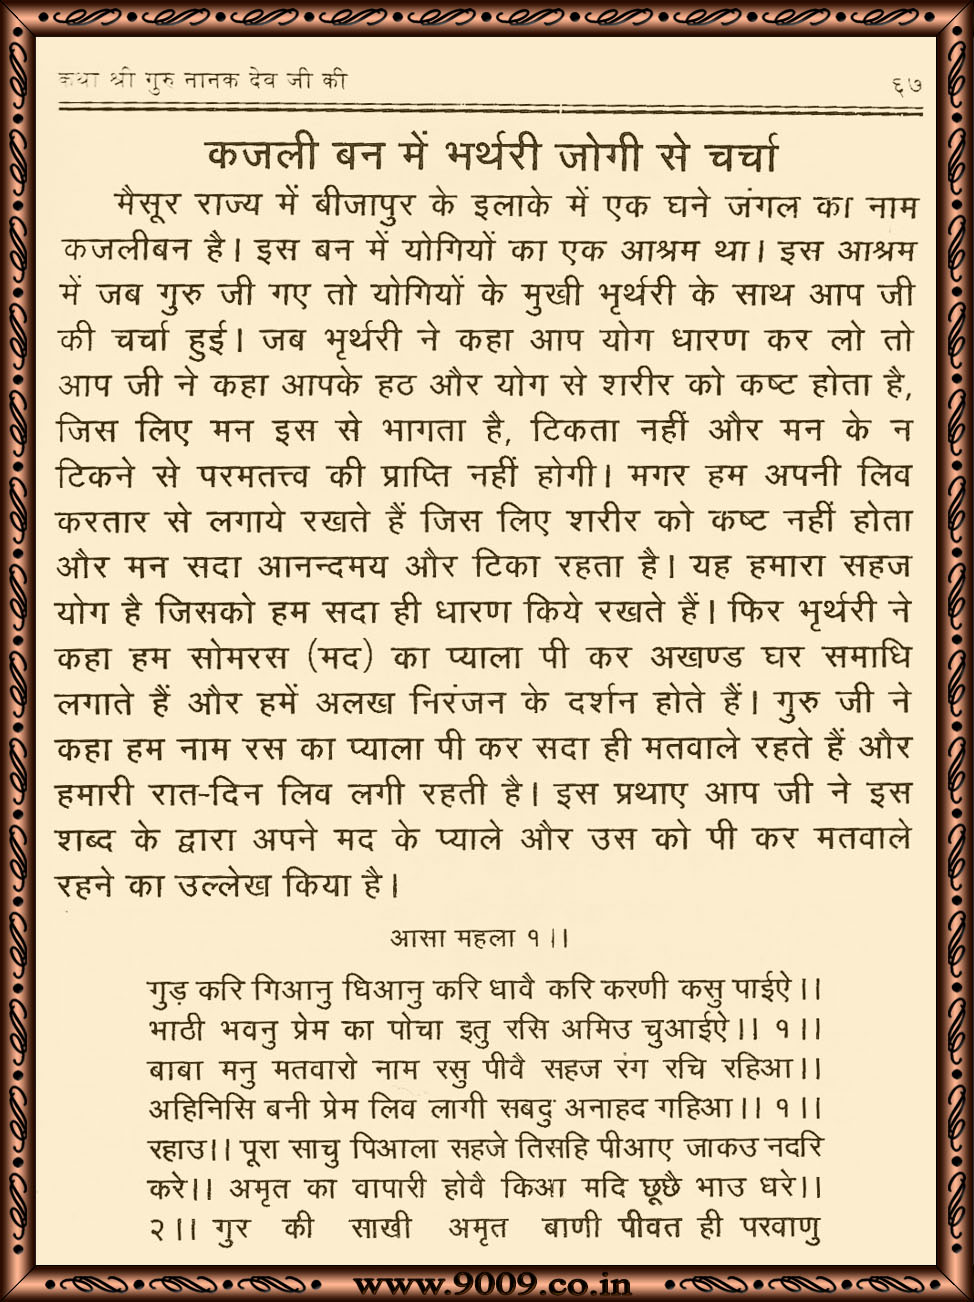 कथा श्री गुरु नानक देव जी की ६७
कजली बन में भर्थरी जोगी से चर्चा
मैसूर राज्य में बीजापुर के इलाके में एक घने जंगल का नाम
कजलीबन है। इस बन में योगियों का एक आश्रम था। इस आश्रम
में जब गुरु जी गए तो योगियों के मुखी भृर्थरी के साथ आप जी
की चर्चा हुई। जब भृर्थरी ने कहा आप योग धारण कर लो तो
आप जी ने कहा आपके हठ और योग से शरीर को कष्ट होता है,
जिस लिए मन इस से भागता है, टिकता नहीं और मन के न
टिकने से परमतत्त्व की प्राप्ति नहीं होगी। मगर हम अपनी लिव
करतार से लगाये रखते हैं जिस लिए शरीर को कष्ट नहीं होता
और मन सदा आनन्दमय और टिका रहता है। यह हमारा सहज
योग है जिसको हम सदा ही धारण किये रखते हैं। फिर भृर्थरी ने
कहा हम सोमरस (मद) का प्याला पी कर अखण्ड घर समाधि
लगाते हैं और हमें अलख निरंजन के दर्शन होते हैं। गुरु जी ने
कहा हम नाम रस का प्याला पी कर सदा ही मतवाले रहते हैं और
हमारी रात-दिन लिव लगी रहती है। इस प्रथाए आप जी ने इस
शब्द के द्वारा अपने मद के प्याले और उस को पी कर मतवाले
रहने का उल्लेख किया है।
आसा महला १।।
गुड़ करि गिआनु धिआनु करि धावै करि करणी कसु पाईऐ।।
भाठी भवनु प्रेम का पोचा इतु रसि अमिउ चुआईऐ।। १।।
बाबा मनु मतवारो नाम रसु पीवै सहज रंग रचि रहिआ।।
अहिनिसि बनी प्रेम लिव लागी सबदु अनाहद गहिआ।। १।।
रहाउ।। पूरा साचु पिआला सहजे तिसहि पीआए जाकउ नदरि
करे।। अमृत का वापारी होवै किआ मदि छूछै भाउ धरे।।
२।। गुर की साखी अमृत बाणी पीवत ही परवाणु
www.9009.co.in